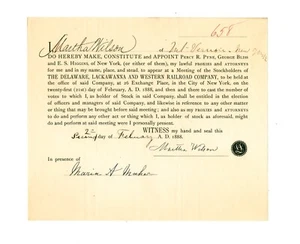 658
Martha Wilson of Mt. Vernon New York
DO HEREBY MAKE, CONSTITUTE and APPOINT PERCY R. PYNE, GEORGE BLISS
and E. S. HIGGINS, of New York, (or either of them), my lawful PROXIES and ATTORNEYS
for me and in my name, place, and stead, to appear at a Meeting of the Stockholders of
THE DELAWARE, LACKAWANNA AND WESTERN RAILROAD COMPANY, to be held
at the office of said Company, at 26 Exchange Place, in the City of New York, on
the twenty-first (21st) day of February, A. D. 1888, and then and there to cast the number of
votes to which I, as holder of Stock in said Company, shall be entitled in the election
of officers and managers of said Company, and likewise in reference to any other matter
or thing that may be brought before said meeting; and also as my PROXIES and ATTORNEYS
to do and perform any other act or thing which I, as holder of stock as aforesaid, might
do and perform at said meeting were I personally present.
WITNESS my hand and seal this
Second day of February A. D. 1888.
Martha Wilson
In presence of
Maria A. Maher